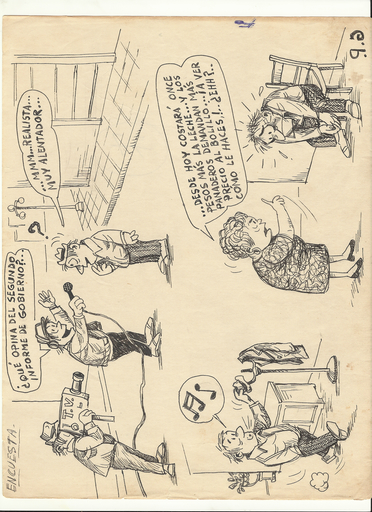 ENCUESTA.
¿QUÉ OPINA DEL SEGUNDO
INFORME DE GOBIERNO?...
MMM...REALISTA...
...MUY ALENTADOR...
?
T.V.
...DESDE HOY COSTARÁ ONCE
PESOS MÁS LA LECHE..Y LOS
PANADEROS DEMANDAN MÁS
PRECIO AL BOLILLO...¡A VER
CÓMO LE HACES!..¿EHH?..